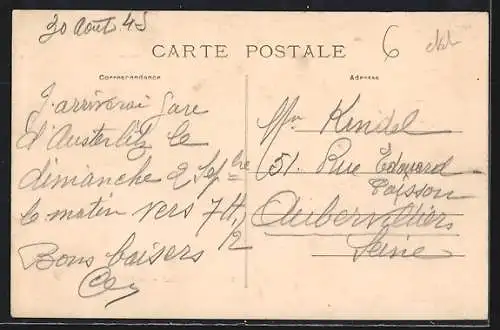 30 Août 45
6
CARTE POSTALE
Correspondance
Adresse
J'arriverai gare
d'Austerlitz le
dimanche 2 Sepbre
le matin vers 7H 1/2
Bons baisers
Mr Kendel
51. Rue Edouard
Poisson
Aubervilliers
Seine